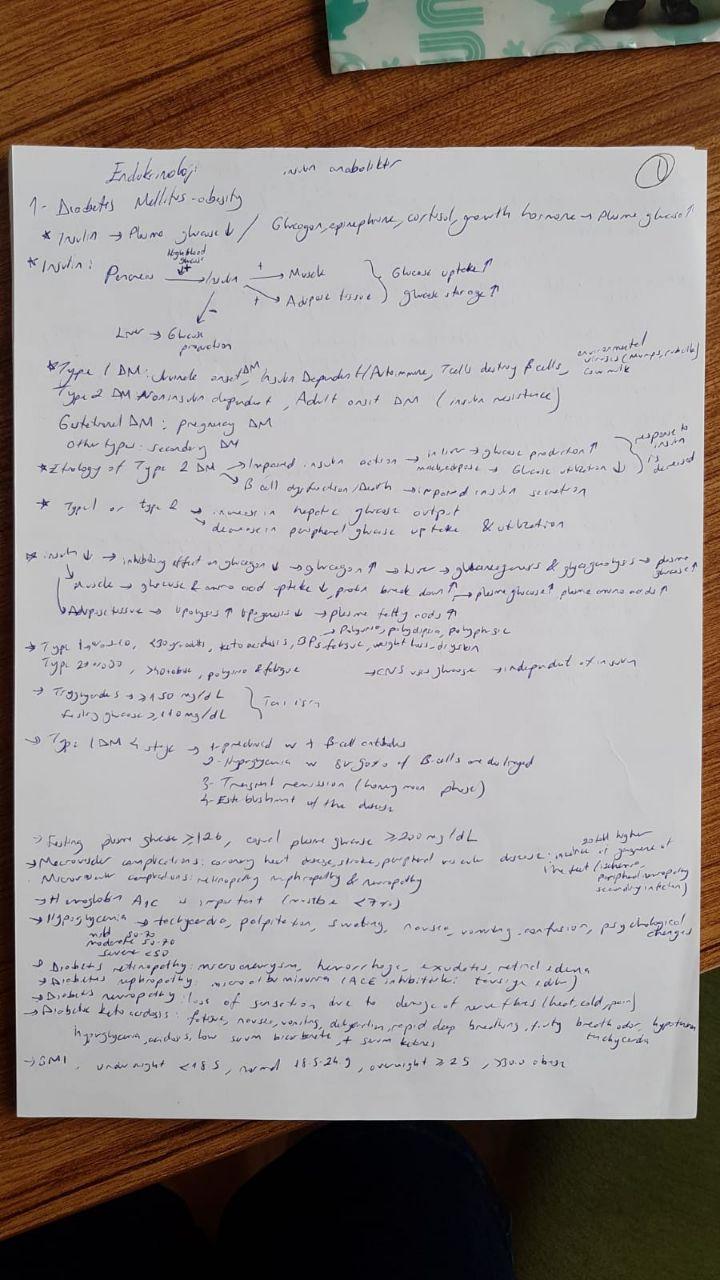 Endokrinoloji insulin anaboliktir 1
1- Diabetes Mellitus-obesity
* Insulin → Plasma glucose ↓ / Glucagon, epinephrine, cortisol, growth hormone → Plasma glucose ↑
High blood glucose
* Insulin: Pancreas → Insulin + → Muscle } Glucose uptake ↑
+ → Adipose tissue glucose storage ↑
-
Liver → Glucose production
* Type 1 DM: Juvenile onset DM, Insulin Dependent/Autoimmune, T cells destroy β cells, environmental viruses (mumps, rubella) cow milk
Type 2 DM: Noninsulin dependent, Adult onset DM (insulin resistance)
Gestational DM: pregnancy DM
Other types: secondary DM
* Etiology of Type 2 DM → Impaired insulin action → in liver → glucose production ↑ } response to insulin is decreased
→ Glucose utilization ↓
→ β cell dysfunction/Death → impaired insulin secretion
* Type 1 or type 2 → increase in hepatic glucose output
→ decrease in peripheral glucose uptake & utilization
* insulin ↓ → inhibitory effect on glucagon ↓ → glucagon ↑ → Liver → & glycogenolysis → plasma glucose ↑
→ Muscle → glucose & amino acid uptake ↓, protein break down ↑ → plasma glucose ↑ plasma amino acids ↑
→ Adipose tissue → lipolysis ↑ lipogenesis ↓ → plasma fatty acids ↑
→ Polyuria, polydipsia, polyphagia
→ Type 1 <30 ketoacidosis, 3Ps, fatigue, weight loss
Type 2 obese, polyuria & fatigue → CNS uses glucose → independent of insulin
→ Triglycerides → ≥150 mg/dL
fasting glucose ≥110 mg/dL
→ Type 1 DM 4 stage → 1- w + β-cell antibodies
2- Hyperglycemia w 80-90% of β-cells are destroyed
3- Transient remission (honeymoon phase)
4- Establishment of the disease
→ Fasting plasma glucose ≥126, casual plasma glucose ≥200 mg/dL
→ Macrovascular complications: coronary heart disease, stroke, peripheral vascular disease: incidence of gangrene of the feet (ischemia, peripheral neuropathy secondary infection) higher
. Microvascular complications: retinopathy nephropathy & neuropathy
→ Hemoglobin A1C is important (must be <7%)
→ Hypoglycemia → tachycardia, palpitation, sweating, nausea, vomiting, confusion, psychological changes
mild 50-70
moderate 50-70
severe <50
→ Diabetes retinopathy: microaneurysm, hemorrhage, exudates, retinal edema
→ Diabetes nephropathy: microalbuminuria (ACE inhibitörleri)
→ Diabetes neuropathy: loss of sensation due to damage of nerve fibres (heat, cold, pain)
→ Diabetic ketoacidosis: fatigue, nausea, vomiting, dehydration, rapid deep breathing, fruity breath odor, hypotension tachycardia
hyperglycemia, acidosis, low serum bicarbonate, + serum ketones
→ BMI, underweight <18.5, normal 18.5-24.9, overweight ≥25, >30.0 obese